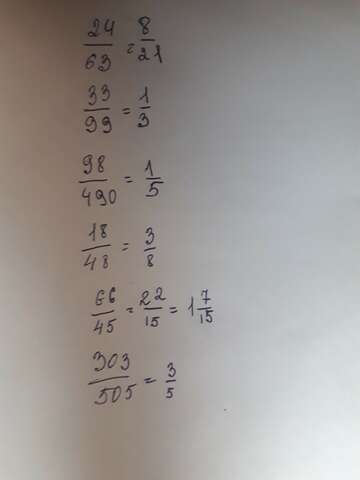 24/63 = 8/21
33/99 = 1/3
98/490 = 1/5
18/48 = 3/8
66/45 = 22/15 = 1 7/15
303/505 = 3/5